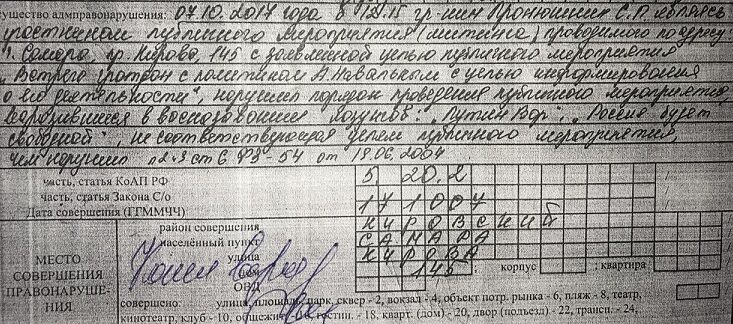 ущество админравонарушения: 07.10.2017 года в 12.15 гр-нин Пронюшкин С.Р. являясь
участником публичного мероприятия (митинга) проводимого по адресу:
г. Самара, пр. Кирова, 145 с заявленной целью публичного мероприятия
"Встреча граждан с политиком А. Навальным с целью информирования
о его деятельности", нарушил порядок проведения публичного мероприятия
выразившиеся в высказывании лозунгов: "Путин Вор", "Россия будет
свободной", не соответствующая целям публичного мероприятия,
чем нарушил п2 ч3 ст 6 ФЗ-54 от 19.06.2004
часть, статья КоАП РФ 5 20.2
часть, статья Закона С/о
Дата совершения (ГГММЧЧ) 171007
МЕСТО СОВЕРШЕНИЯ ПРАВОНАРУШЕ-НИЯ
район совершения КИРОВСКИЙ
населённый пункт САМАРА
улица КИРОВА
дом 145 ; корпус ; квартира
ОВД
совершено: улица, площадь, парк, сквер - 2, вокзал - 4, объект потр. рынка - 6, пляж - 8, театр,
кинотеатр, клуб - 10, общежит гостин. - 18, кварт. (дом) - 20, двор (подъезд) - 22, трансп. - 24,